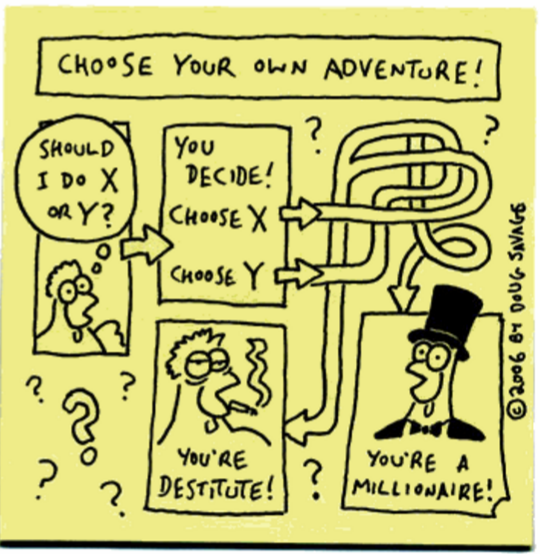 CHOOSE YOUR OWN ADVENTURE!
SHOULD
I DO X
OR Y?
YOU
DECIDE!
CHOOSE X
CHOOSE Y
?
?
?
?
?
?
?
?
YOU'RE
DESTITUTE!
YOU'RE A
MILLIONAIRE!
©2006 BY DOUG SAVAGE